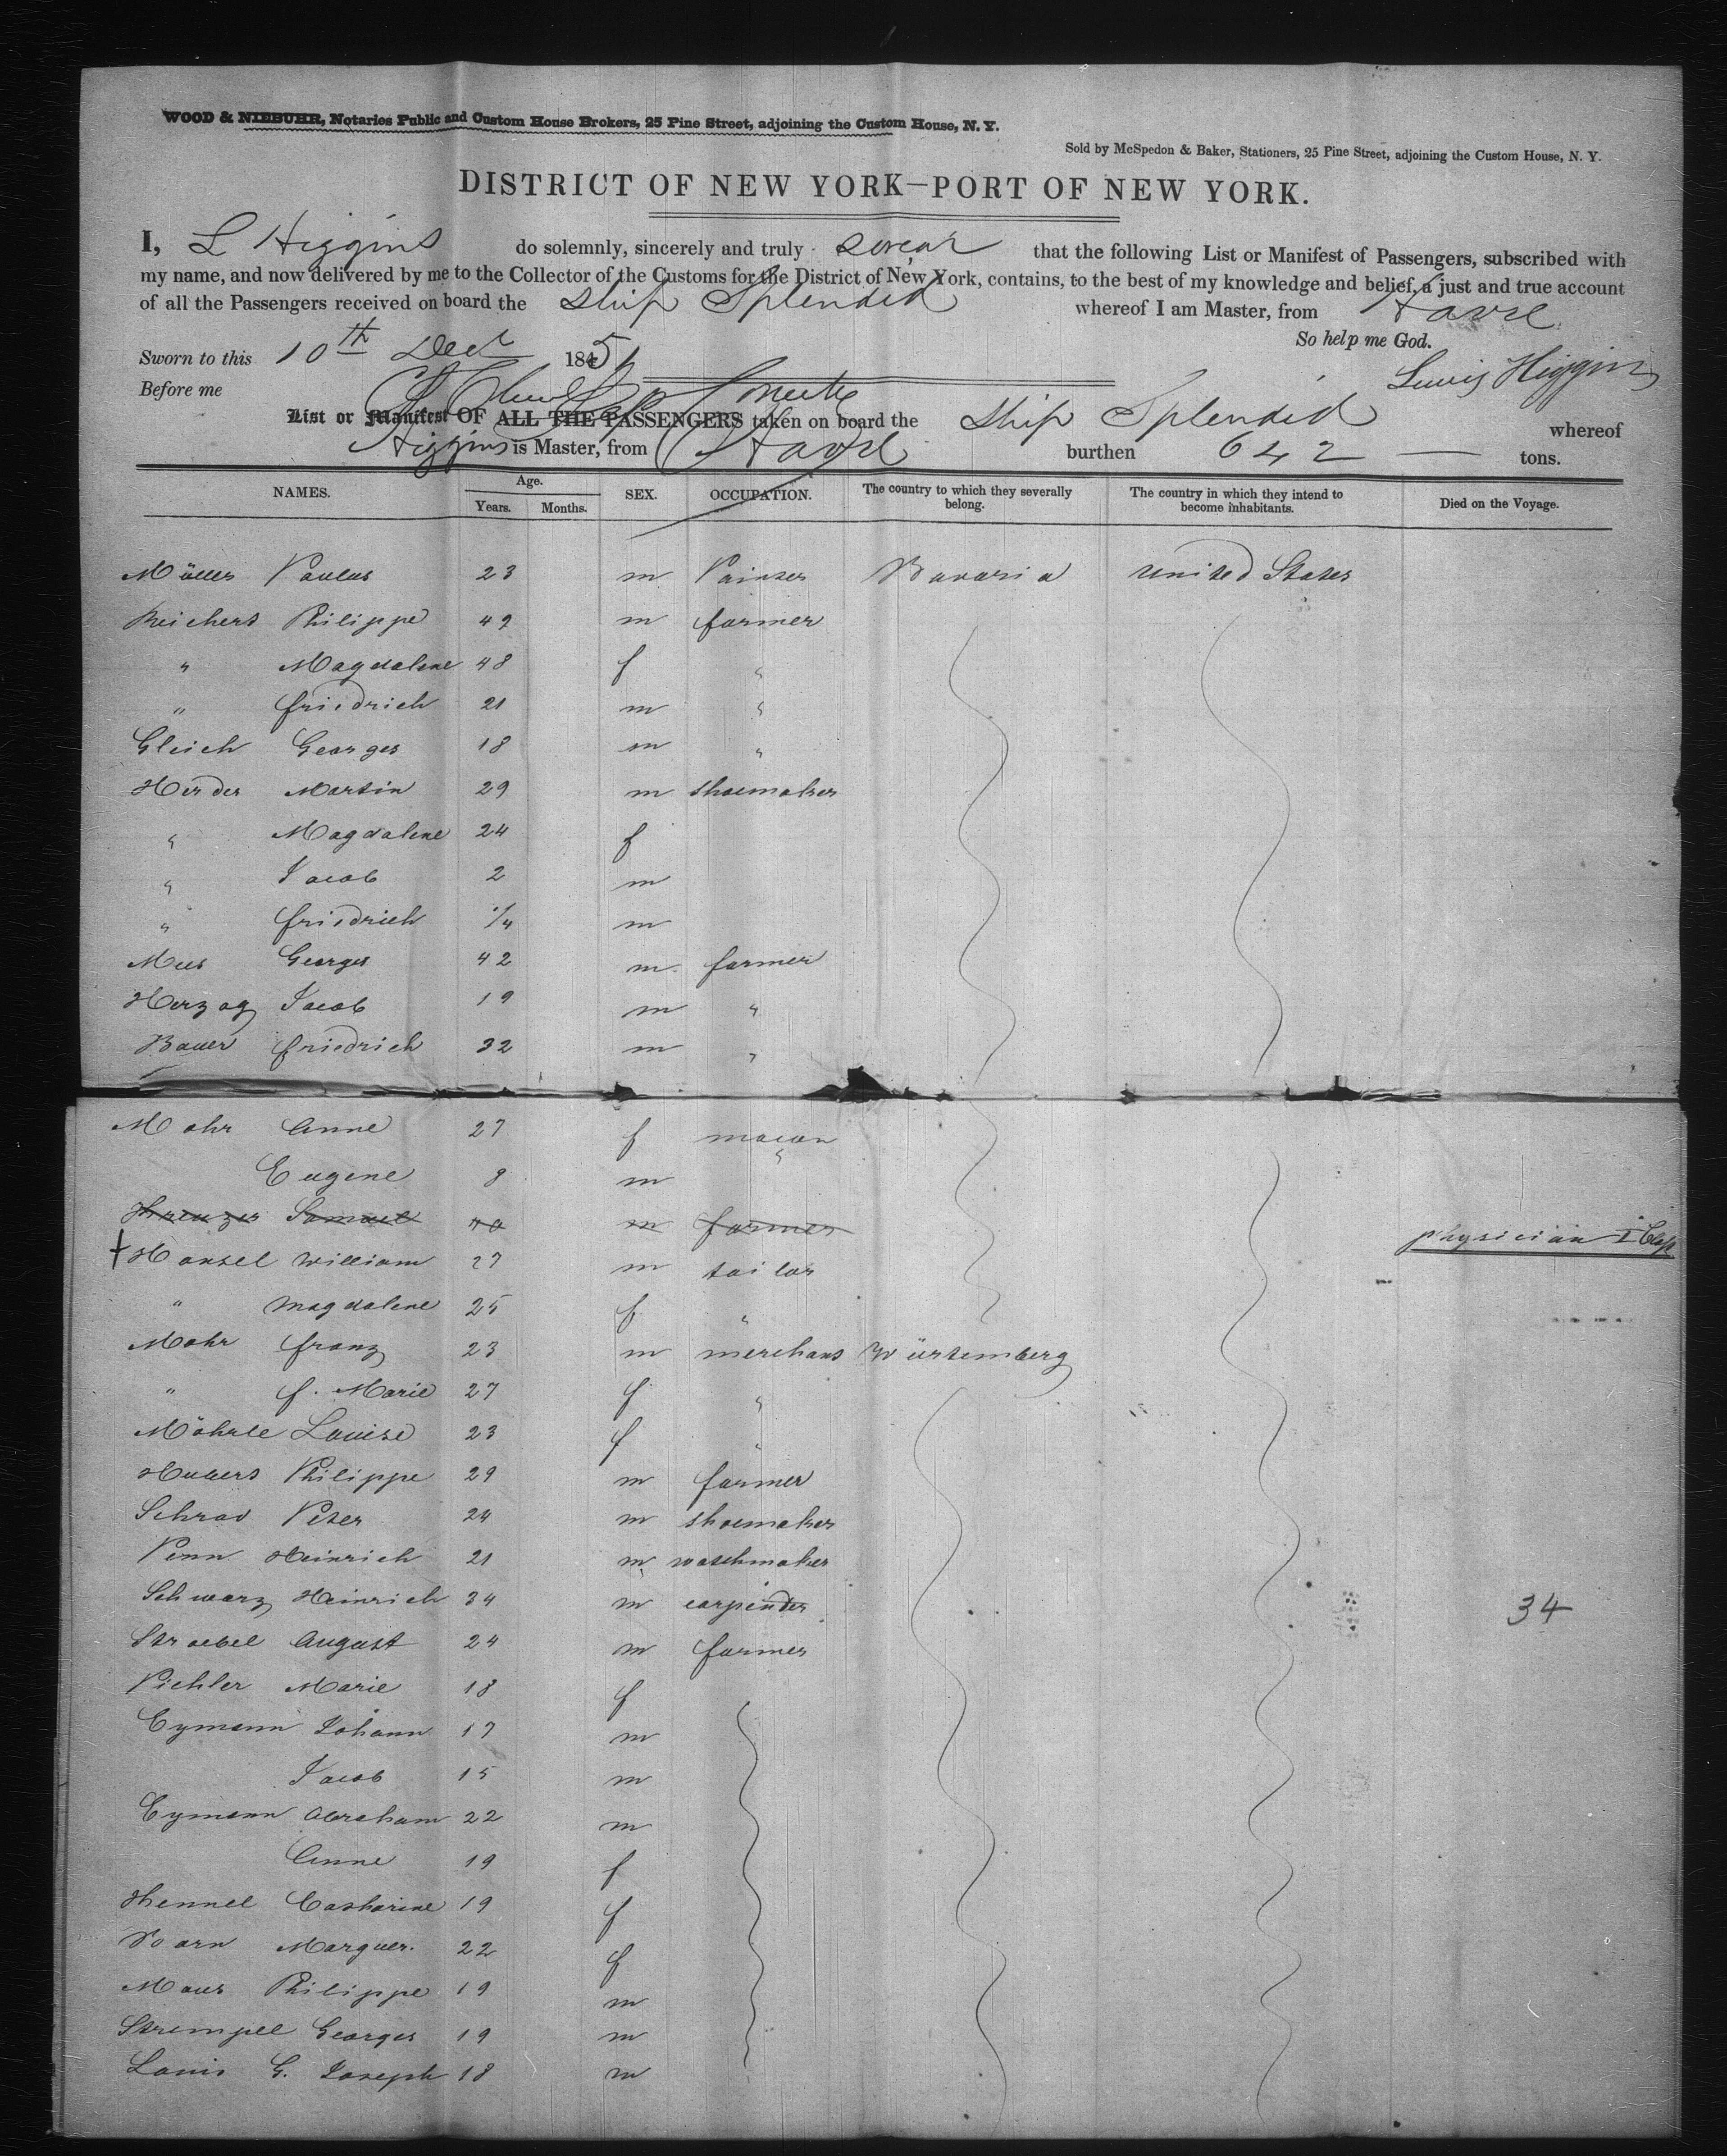 WOOD & NIEBUHR, Notaries Public and Custom House Brokers, 25 Pine Street, adjoining the Custom House, N. Y.
Sold by McSpedon & Baker, Stationers, 25 Pine Street, adjoining the Custom House, N. Y.
DISTRICT OF NEW YORK—PORT OF NEW YORK.
I, L Higgins do solemnly, sincerely and truly swear that the following List or Manifest of Passengers, subscribed with
my name, and now delivered by me to the Collector of the Customs for the District of New York, contains, to the best of my knowledge and belief, a just and true account
of all the Passengers received on board the Ship Splendid whereof I am Master, from Havre
So help me God.
Sworn to this 10th Dec 1851
Lewis Higgins
Before me
List or Manifest OF ALL THE PASSENGERS taken on board the Ship Splendid whereof
Higgins is Master, from Havre burthen 642 tons.
NAMES. Age. Years. Months. SEX. OCCUPATION. The country to which they severally belong. The country in which they intend to become inhabitants. Died on the Voyage.
Müller Paulus 23 m Painter Bavaria United States
Reichert Philippe 49 m farmer
" Magdalene 48 f "
" friedrich 21 m "
Gleich Georges 18 m "
Herder Martin 29 m shoemaker
" Magdalene 24 f
" Jacob 2 m
" friedrich 1/4 m
Mees Georges 42 m farmer
Herzog Jacob 19 m "
Bauer friedrich 32 m "
Mohr Anne 27 f macon
Eugene 8 m "
Kreuzer Samuel 40 m farmer physician I Class
+ Hansel William 27 m tailor
" Magdalene 25 f "
Mohr franz 23 m merchant Würtemberg
" f. Marie 27 f "
Möhrle Louise 23 f "
Hubers Philippe 29 m farmer
Schrad Peter 24 m shoemaker
Penn Heinrich 21 m watchmaker
Schwarz Heinrich 34 m carpinder 34
Stroebel August 24 m farmer
Pichler Marie 18 f
Eymann Johann 17 m
Jacob 15 m
Eymann Abraham 22 m
Anne 19 f
Hennel Catharine 19 f
Born Marguer. 22 f
Maus Philippe 19 m
Strempel Georges 19 m
Louis G. Joseph 18 m